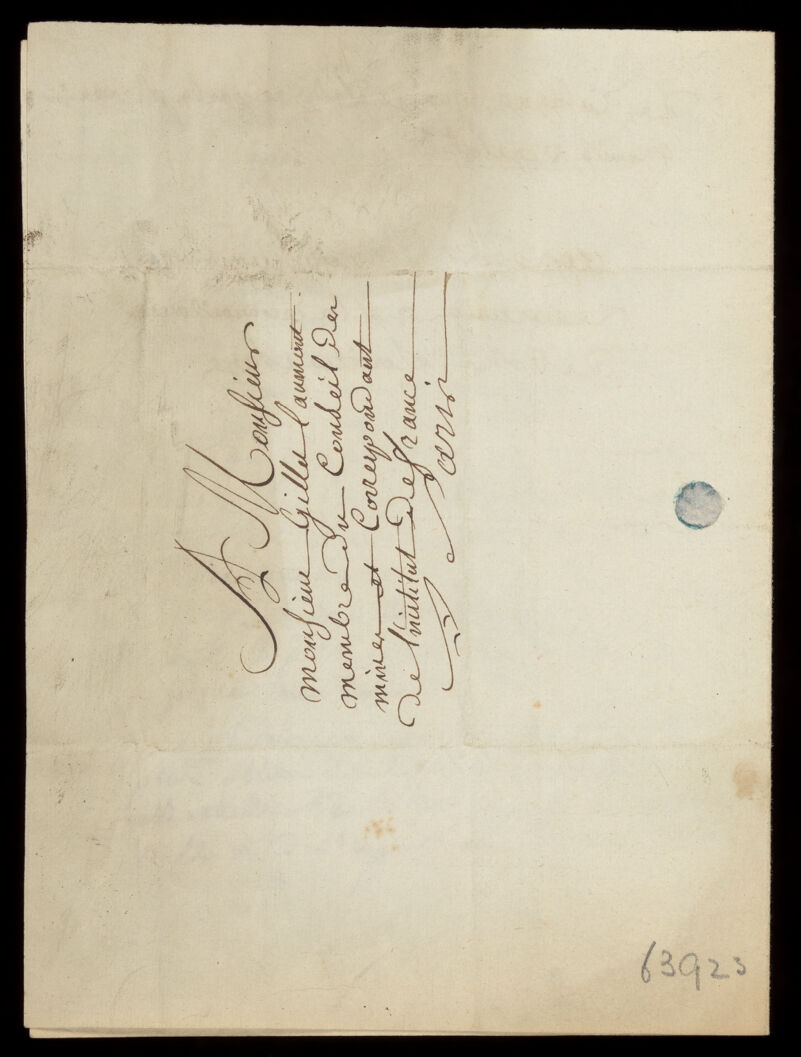 A Monsieur
monsieur Gillet laumont
membre du Conseil des
mines et Correspondant
de l'institut de france
Paris
63923